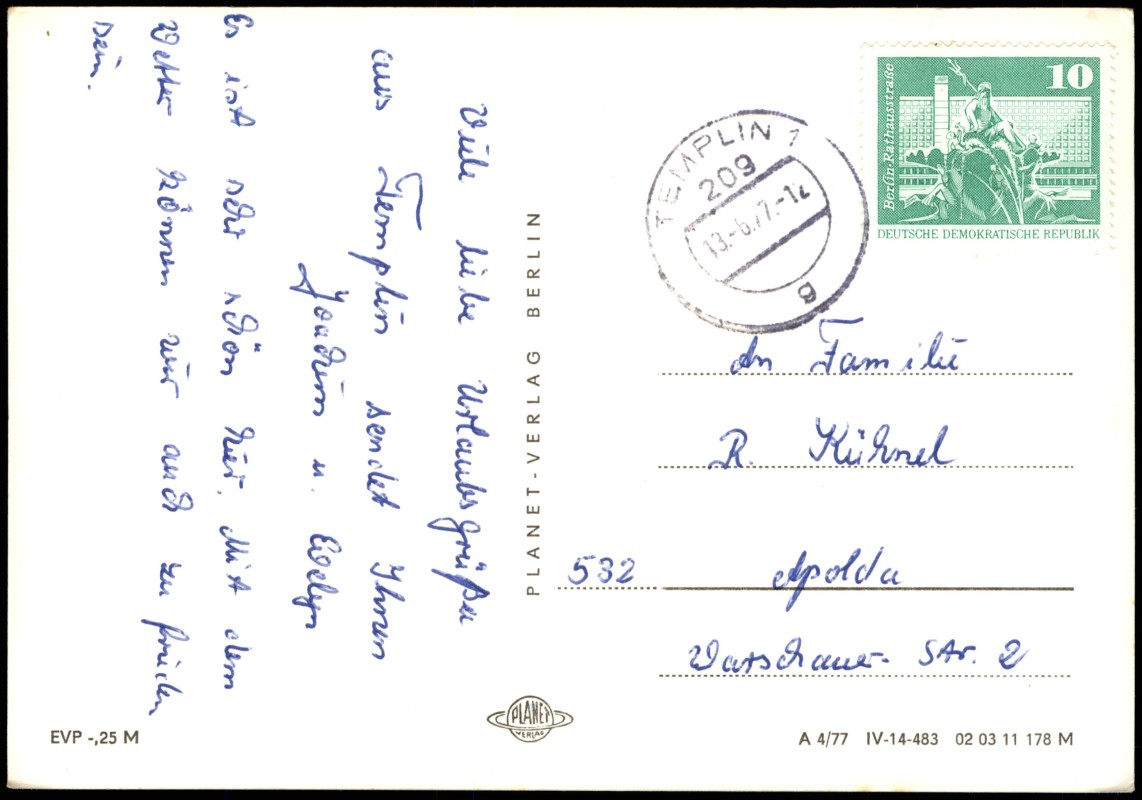 Viele liebe Urlaubsgrüße
aus Templin sendet Ihnen
Joachim u. Evelyn
Es ist sehr schön hier. Mit dem
Wetter können wir auch zu frieden
sein.
PLANET-VERLAG BERLIN
TEMPLIN 1
209
13.-6.77.-12
a
10
Berlin-Rathausstraße
DEUTSCHE DEMOKRATISCHE REPUBLIK
An Familie
R. Kühnel
532 Apolda
Warschauer Str. 2
PLANET
VERLAG
EVP -,25 M
A 4/77 IV-14-483 02 03 11 178 M